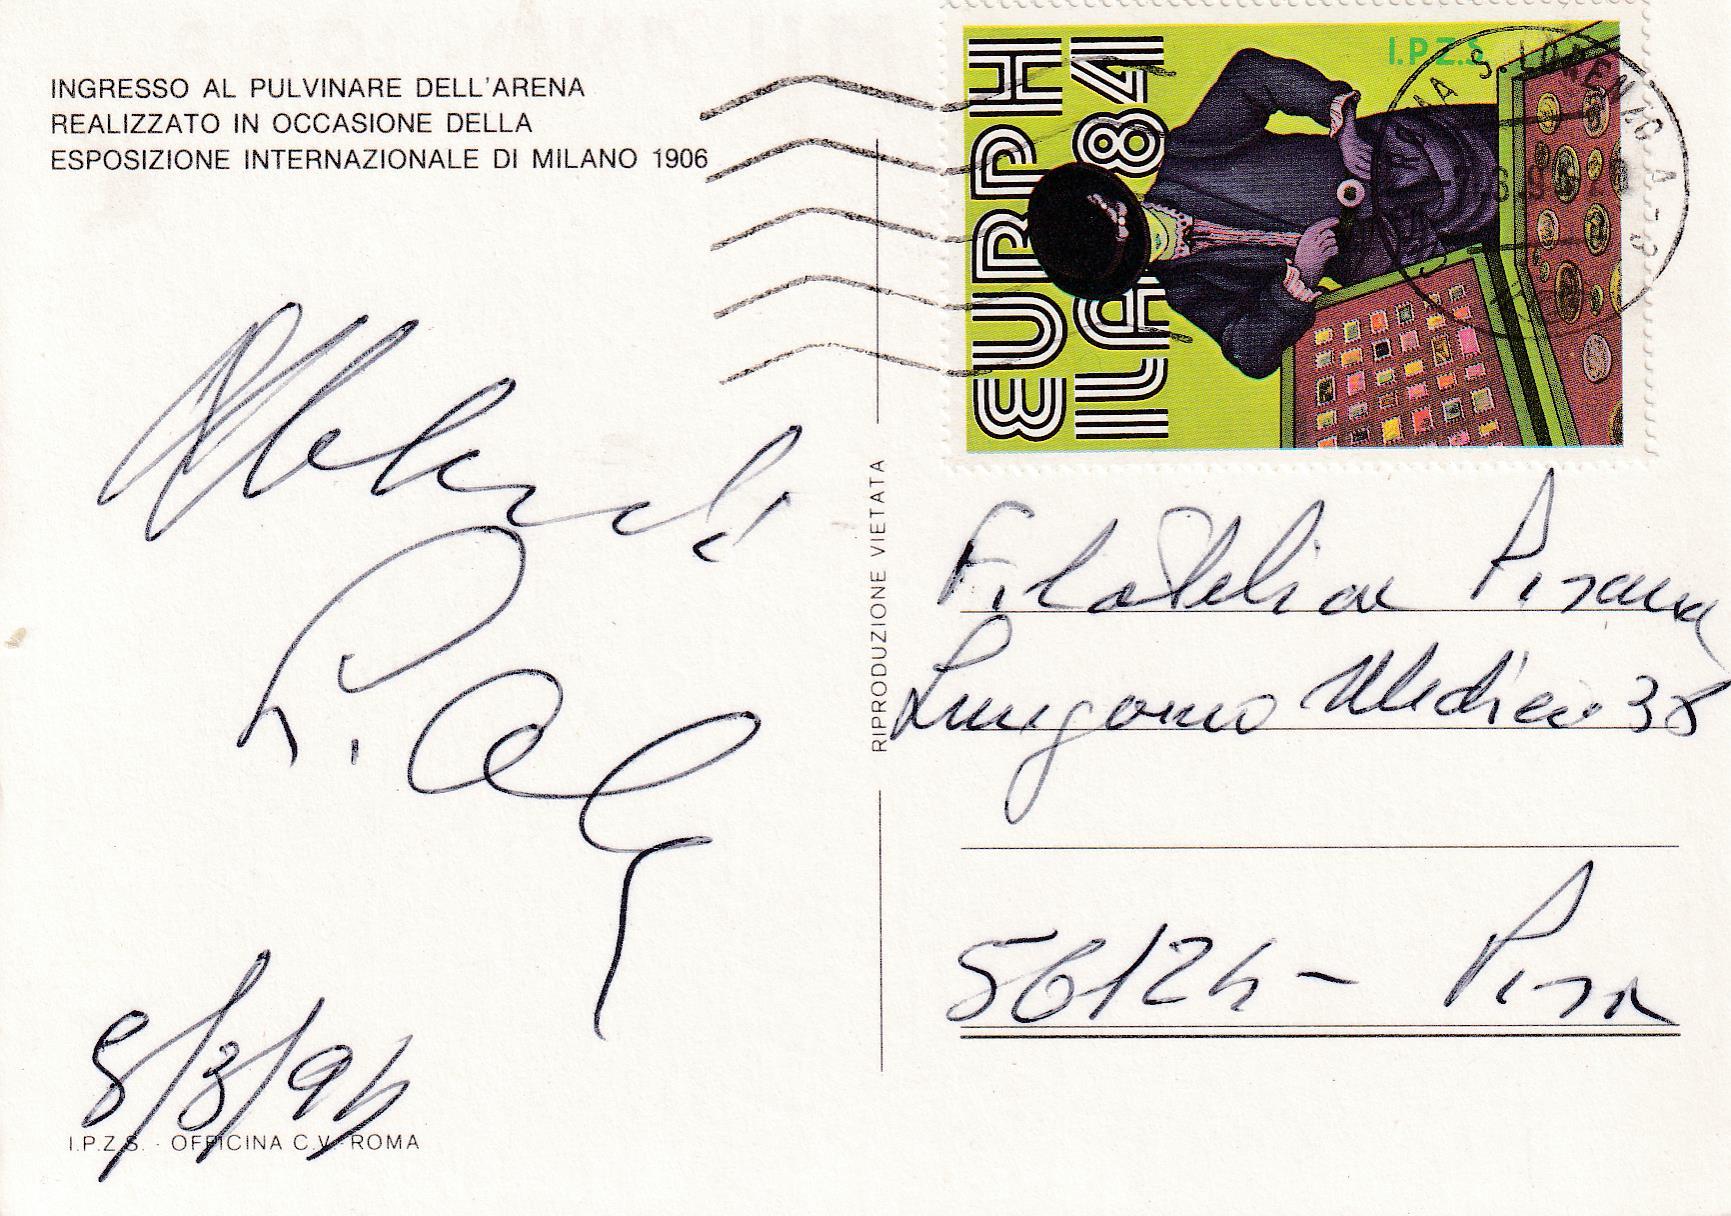 INGRESSO AL PULVINARE DELL'ARENA
REALIZZATO IN OCCASIONE DELLA
ESPOSIZIONE INTERNAZIONALE DI MILANO 1906
I.P.Z.S.
EURPH
ILA 84
S. LORENZO
RIPRODUZIONE VIETATA
Filatelia Pisana
Lungarno Mediceo 38
56124 - Pisa
8/3/94
I.P.Z.S. - OFFICINA C.V. ROMA